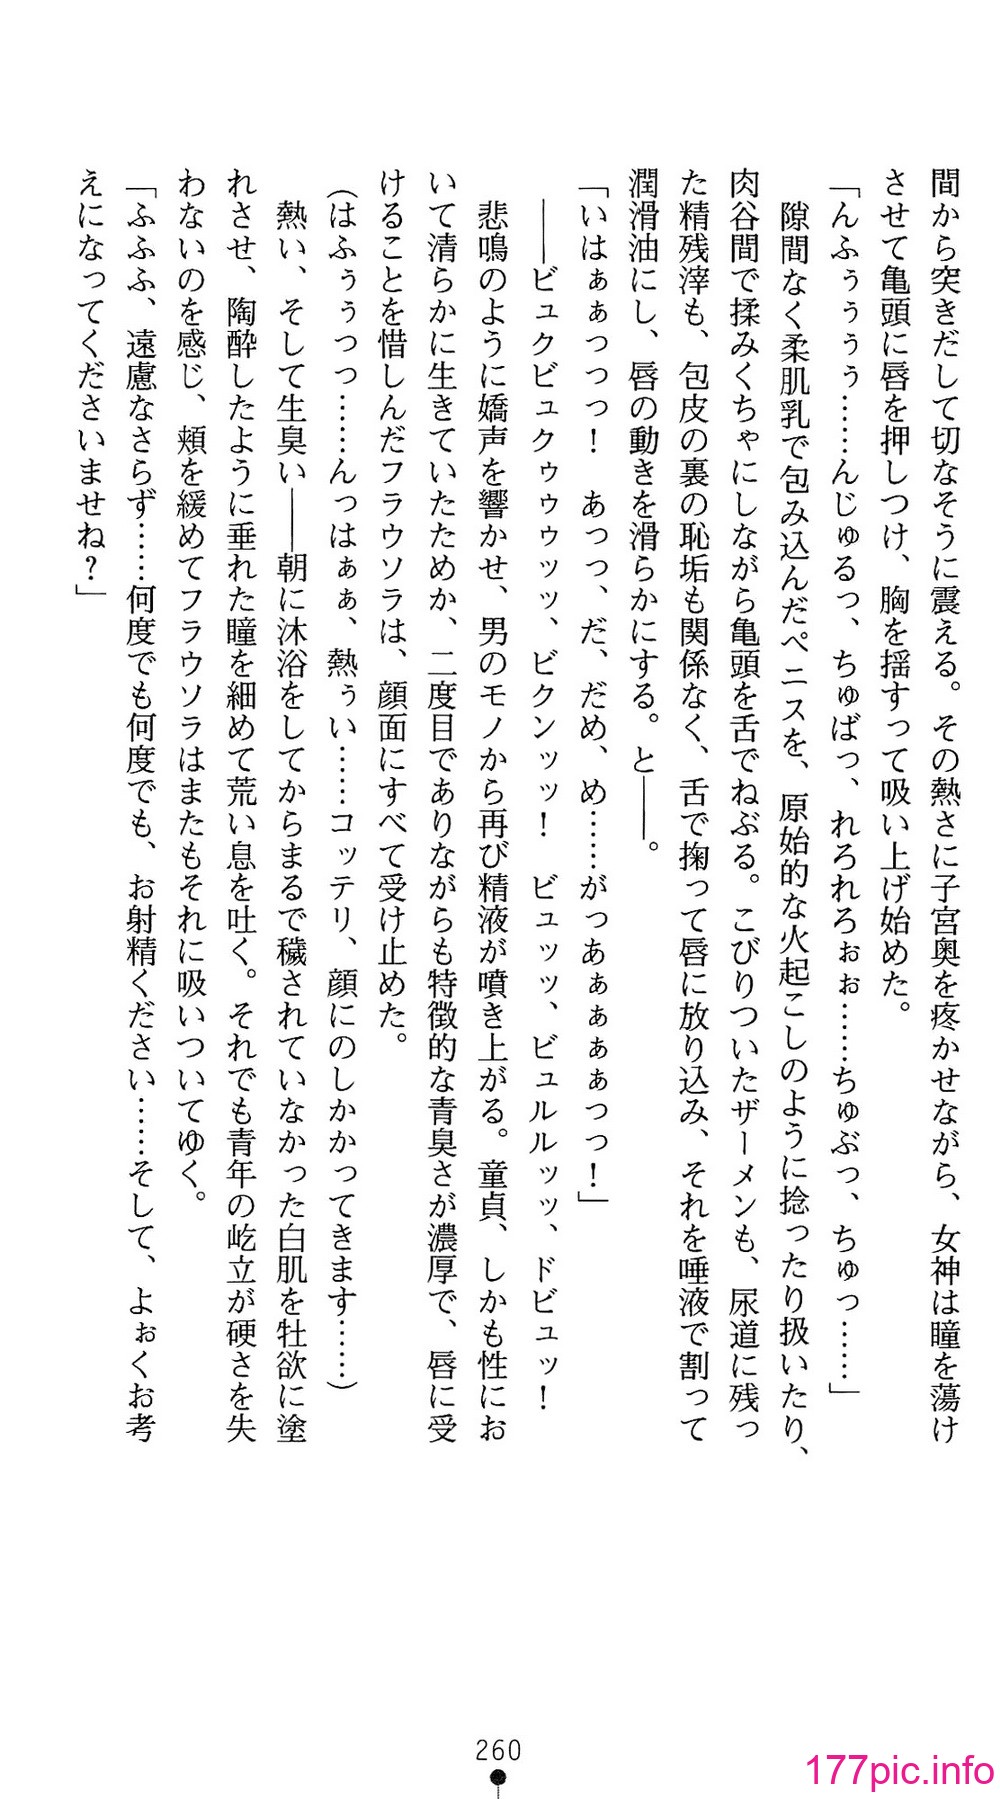 間から突きだして切なそうに震える。その熱さに子宮奥を疼かせながら、女神は瞳を蕩け
させて亀頭に唇を押しつけ、胸を揺すって吸い上げ始めた。
「んふぅぅぅぅ……んじゅるっ、ちゅばっ、れろれろぉぉ……ちゅぶっ、ちゅっ……」
　隙間なく柔肌乳で包み込んだペニスを、原始的な火起こしのように捻ったり扱いたり、
肉谷間で揉みくちゃにしながら亀頭を舌でねぶる。こびりついたザーメンも、尿道に残っ
た精残滓も、包皮の裏の恥垢も関係なく、舌で掬って唇に放り込み、それを唾液で割って
潤滑油にし、唇の動きを滑らかにする。と――。
「いはぁぁっっっ！　あっっ、だ、だめ、め……がっあぁぁぁぁっっ！」
　――ビュクビュクゥゥゥッッ、ビクンッッ！　ビュッッ、ビュルルッッ、ドビュッ！
　悲鳴のように嬌声を響かせ、男のモノから再び精液が噴き上がる。童貞、しかも性にお
いて清らかに生きていたためか、二度目でありながらも特徴的な青臭さが濃厚で、唇に受
けることを惜しんだフラウソラは、顔面にすべて受け止めた。
（はふぅぅっっ……んっはぁぁ、熱ぅい……コッテリ、顔にのしかかってきます……）
　熱い、そして生臭い――朝に沐浴をしてからまるで穢されていなかった白肌を牡欲に塗
れさせ、陶酔したように垂れた瞳を細めて荒い息を吐く。それでも青年の屹立が硬さを失
わないのを感じ、頬を緩めてフラウソラはまたもそれに吸いついてゆく。
「ふふふ、遠慮なさらず……何度でも何度でも、お射精ください……そして、よぉくお考
えになってくださいませね？」
260
177pic.info